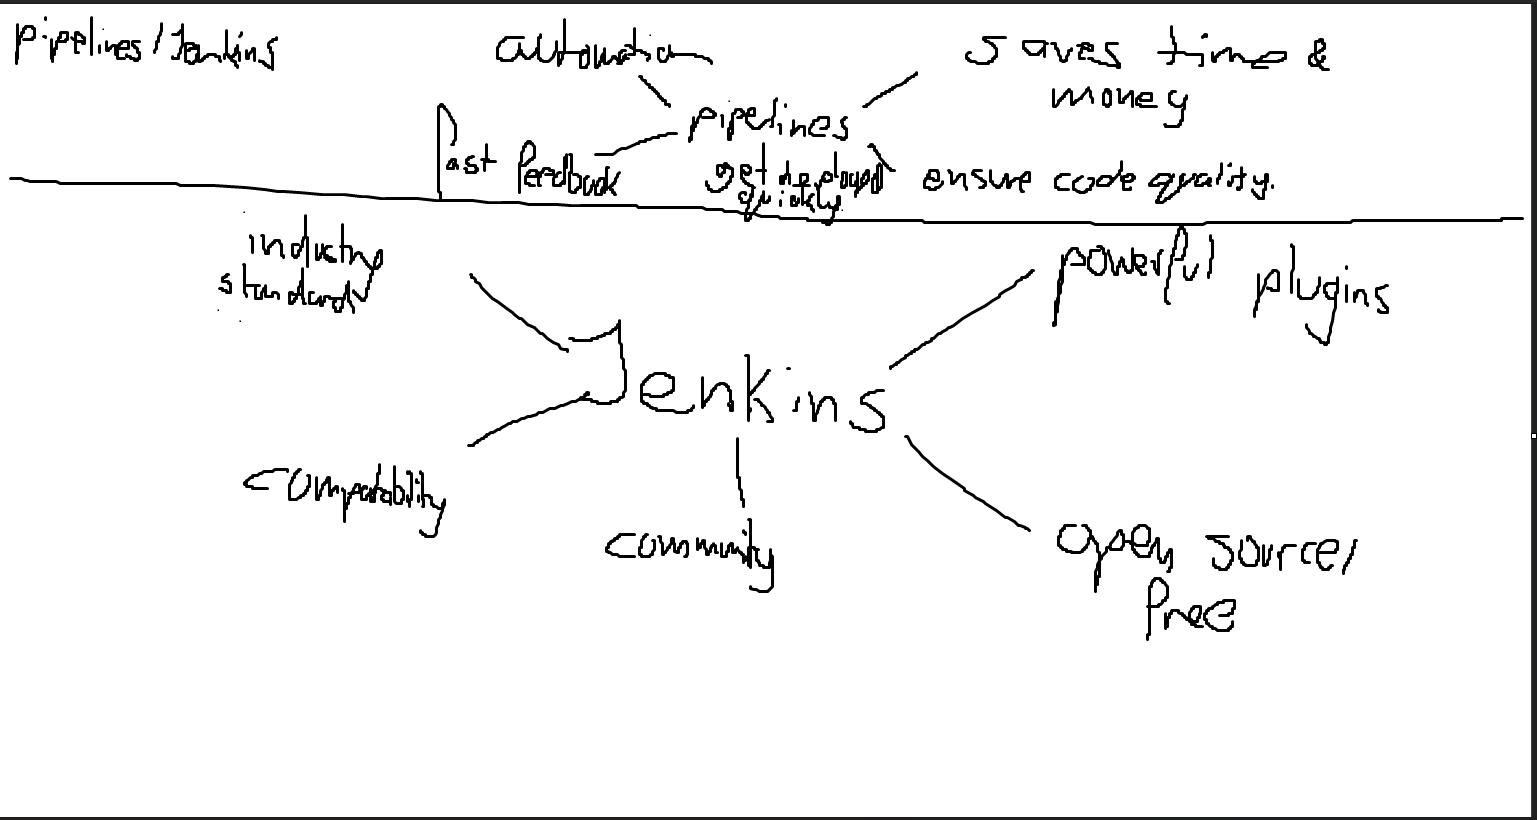 pipelines/Jenkins
automation
saves time &
money
pipelines
fast feedback
get deployed
quickly
ensure code quality.
industry
standard
powerful plugins
Jenkins
compatability
community
open source/
free